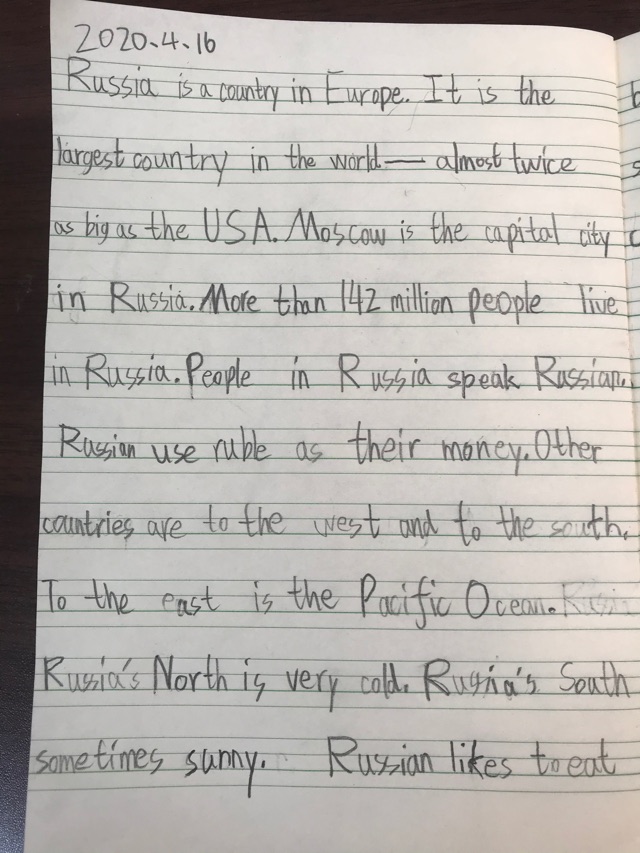 2020.4.16
Russia is a country in Europe. It is the
largest country in the world — almost twice
as big as the USA. Moscow is the capital city
in Russia. More than 142 million people live
in Russia. People in Russia speak Russian.
Russian use ruble as their money. Other
countries are to the west and to the south.
To the east is the Pacific Ocean.
Rusia's North is very cold. Rusria's South
sometimes sunny. Russian likes to eat